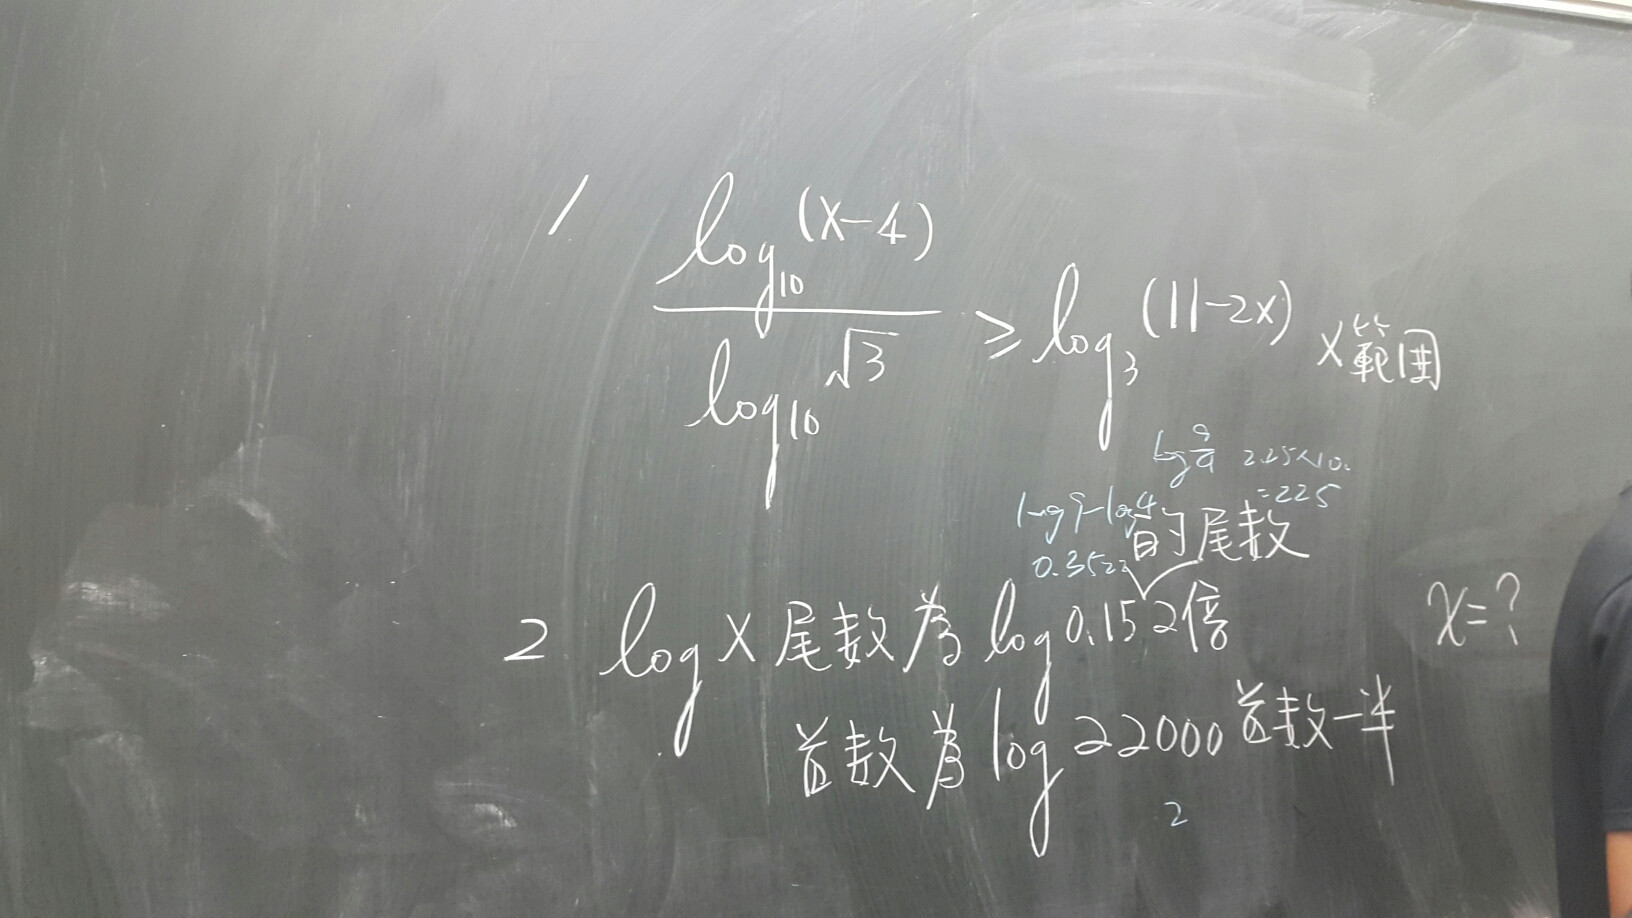 1 log₁₀(x-4) / log₁₀√3 ≥ log₃(11-2x) x範囲
log 9/4 2.25×10
log9-log4 =225
0.3522 的尾数
2 log x 尾数為 log 0.15 2倍 x=?
首数為 log 22000 首数一半
2